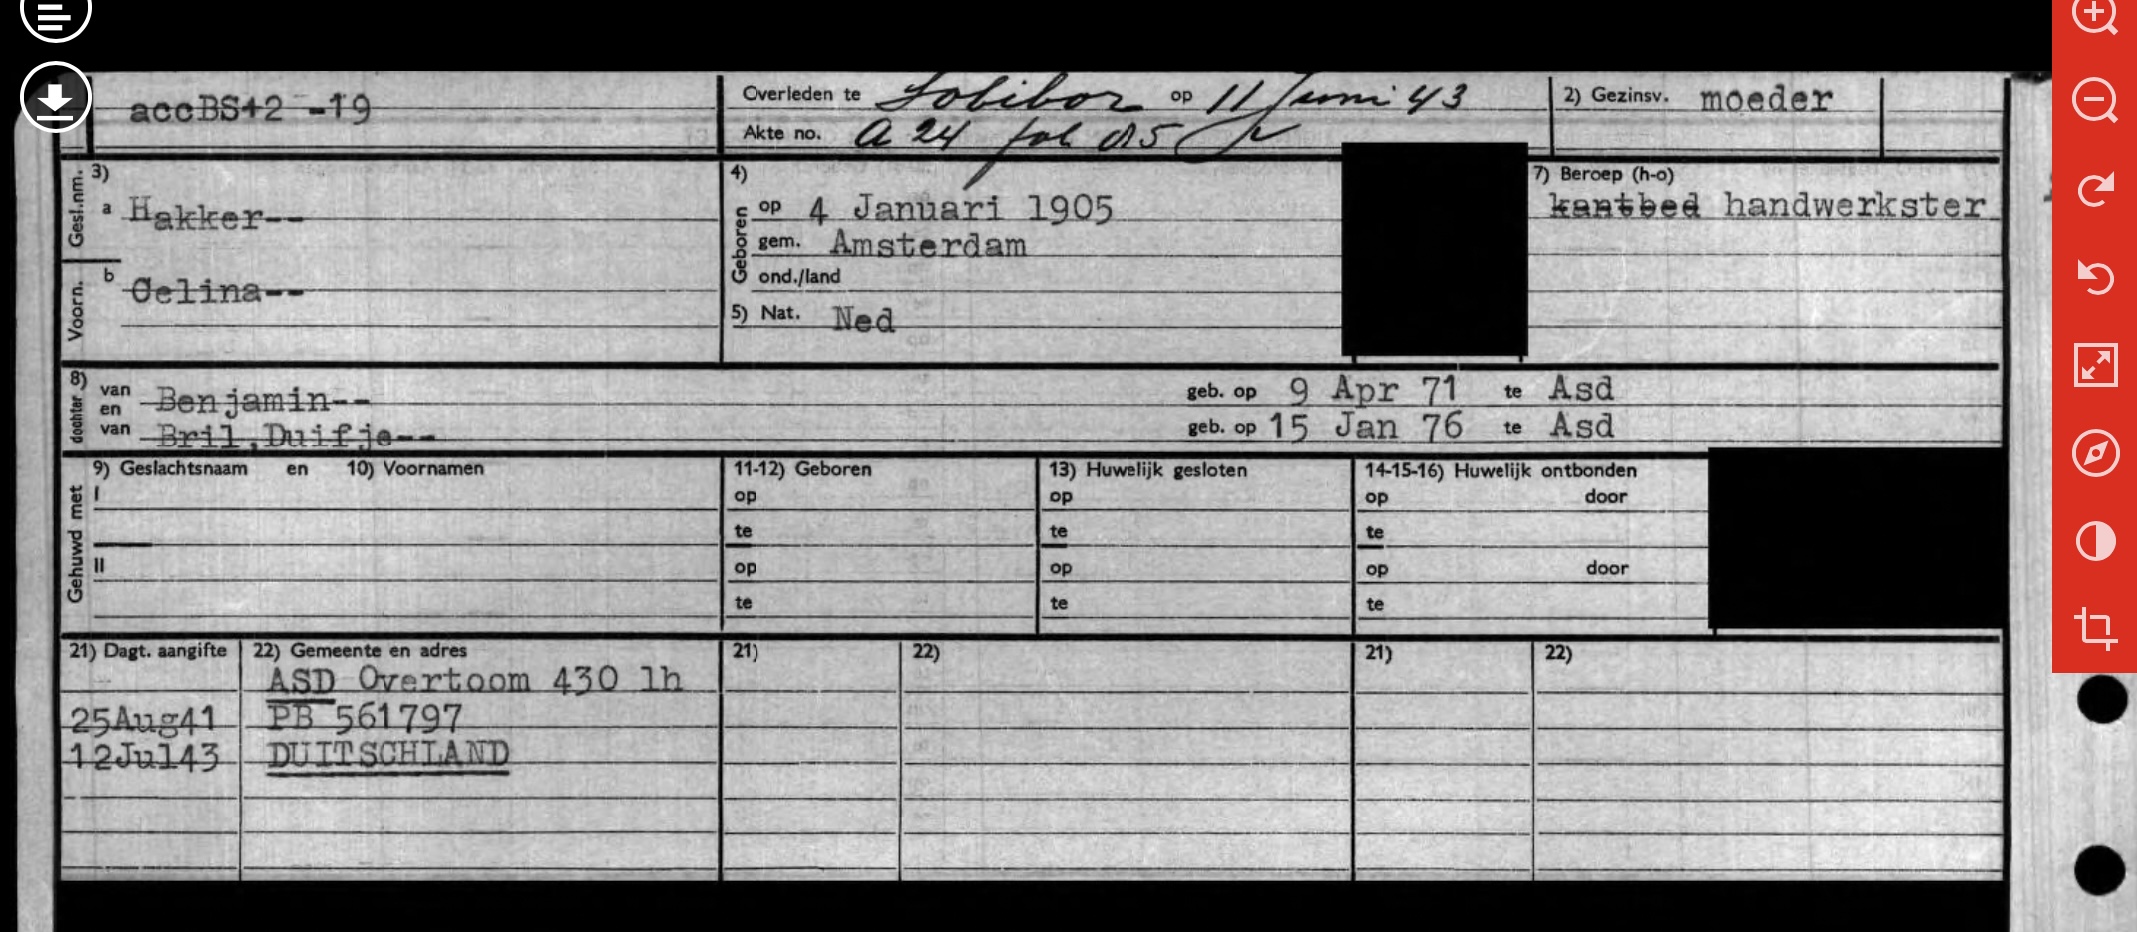 accBS42 -19
Overleden te Sobibor op 11 Juni 43
Akte no. A 24 fol 85
2) Gezinsv. moeder
3)
Gesl.nm. a Hakker--
Voorn. b Celina--
4)
Geboren op 4 Januari 1905
gem. Amsterdam
ond./land
5) Nat. Ned
7) Beroep (h-o)
kantbed handwerkster
8) dochter van Benjamin-- geb. op 9 Apr 71 te Asd
en
van Bril,Duifje-- geb. op 15 Jan 76 te Asd
Gehuwd met
9) Geslachtsnaam en 10) Voornamen
I
II
11-12) Geboren
op
te
op
te
13) Huwelijk gesloten
op
te
op
te
14-15-16) Huwelijk ontbonden
op door
te
op door
te
21) Dagt. aangifte 22) Gemeente en adres 21) 22) 21) 22)
ASD Overtoom 430 lh
25Aug41 PB 561797
12Jul43 DUITSCHLAND